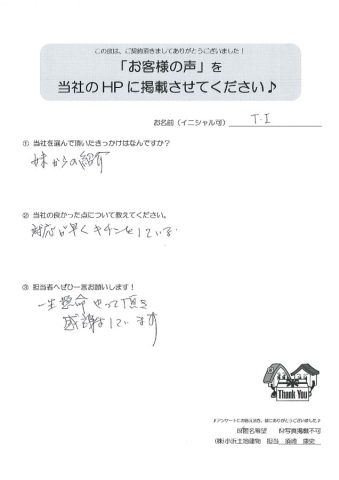 この度は、ご契約頂きましてありがとうございました！
「お客様の声」を
当社のHPに掲載させてください♪
お名前（イニシャル可） T.I
① 当社を選んで頂いたきっかけはなんですか？
妹からの紹介
② 当社の良かった点について教えてください。
対応が早くキチンとしている
③ 担当者へぜひ一言お願いします！
一生懸命やって頂き
感謝しています
Thank You
♪アンケートにお答え頂き、誠にありがとうございました♪
匿名希望 写真掲載不可
(株)小浜土地建物 担当